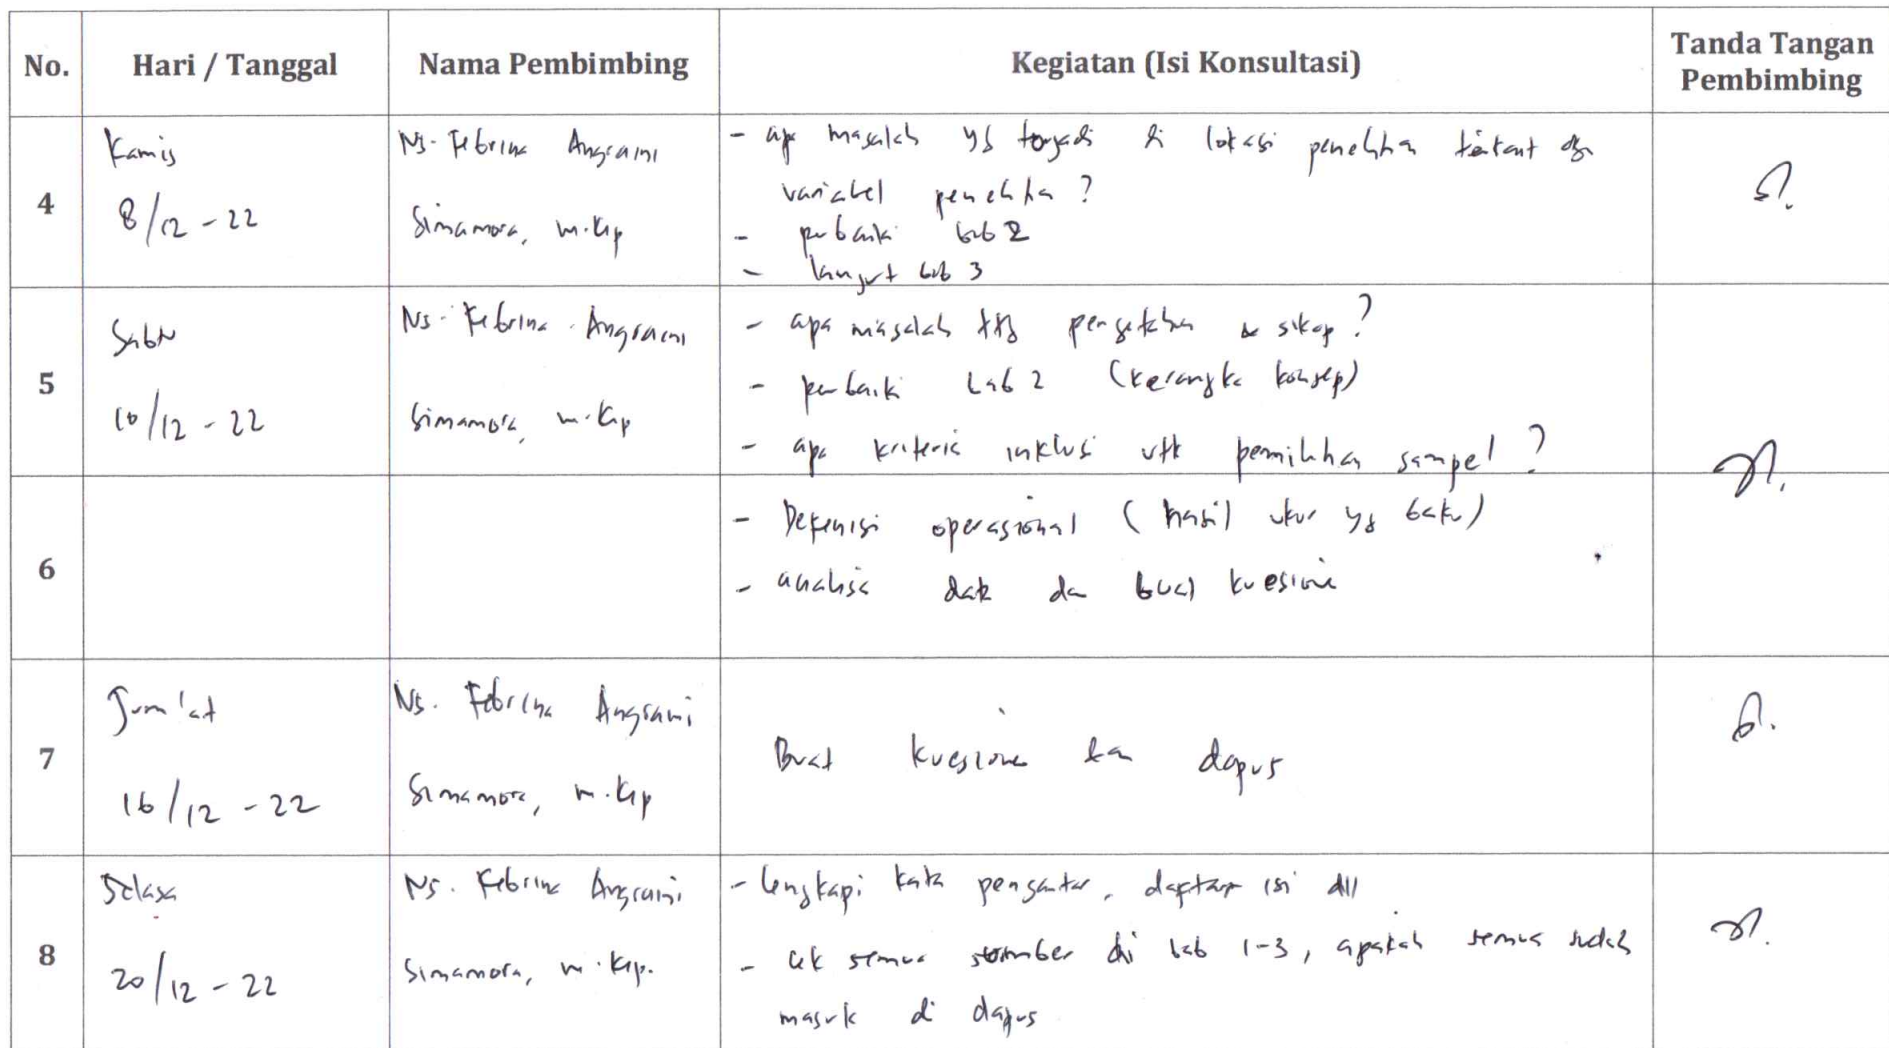 No. Hari / Tanggal Nama Pembimbing Kegiatan (Isi Konsultasi) Tanda Tangan
Pembimbing
4
Kamis
8/12 - 22
Ns. Febrina Angraini
Simamora, M.Kep
- apa masalah yg terjadi di lokasi penelitian terkait dgn
variabel penelitian?
- perbaiki bab 2
- lanjut bab 3
5
Sabtu
10/12 - 22
Ns. Febrina Angraini
Simamora, M.Kep
- apa masalah ttg pengetahuan & sikap?
- perbaiki bab 2 (kerangka konsep)
- apa kriteria inklusi utk pemilihan sampel?
6
- Defenisi operasional (hasil ukur yg baku)
- analisa data dan buat kuesioner
7
Jum'at
16/12 - 22
Ns. Febrina Angraini
Simamora, M.Kep
Buat kuesioner dan dapus
8
Selasa
20/12 - 22
Ns. Febrina Angraini
Simamora, M.Kep.
- lengkapi kata pengantar, daftar isi dll
- cek semua sumber di bab 1-3, apakah semua sudah
masuk di dapus